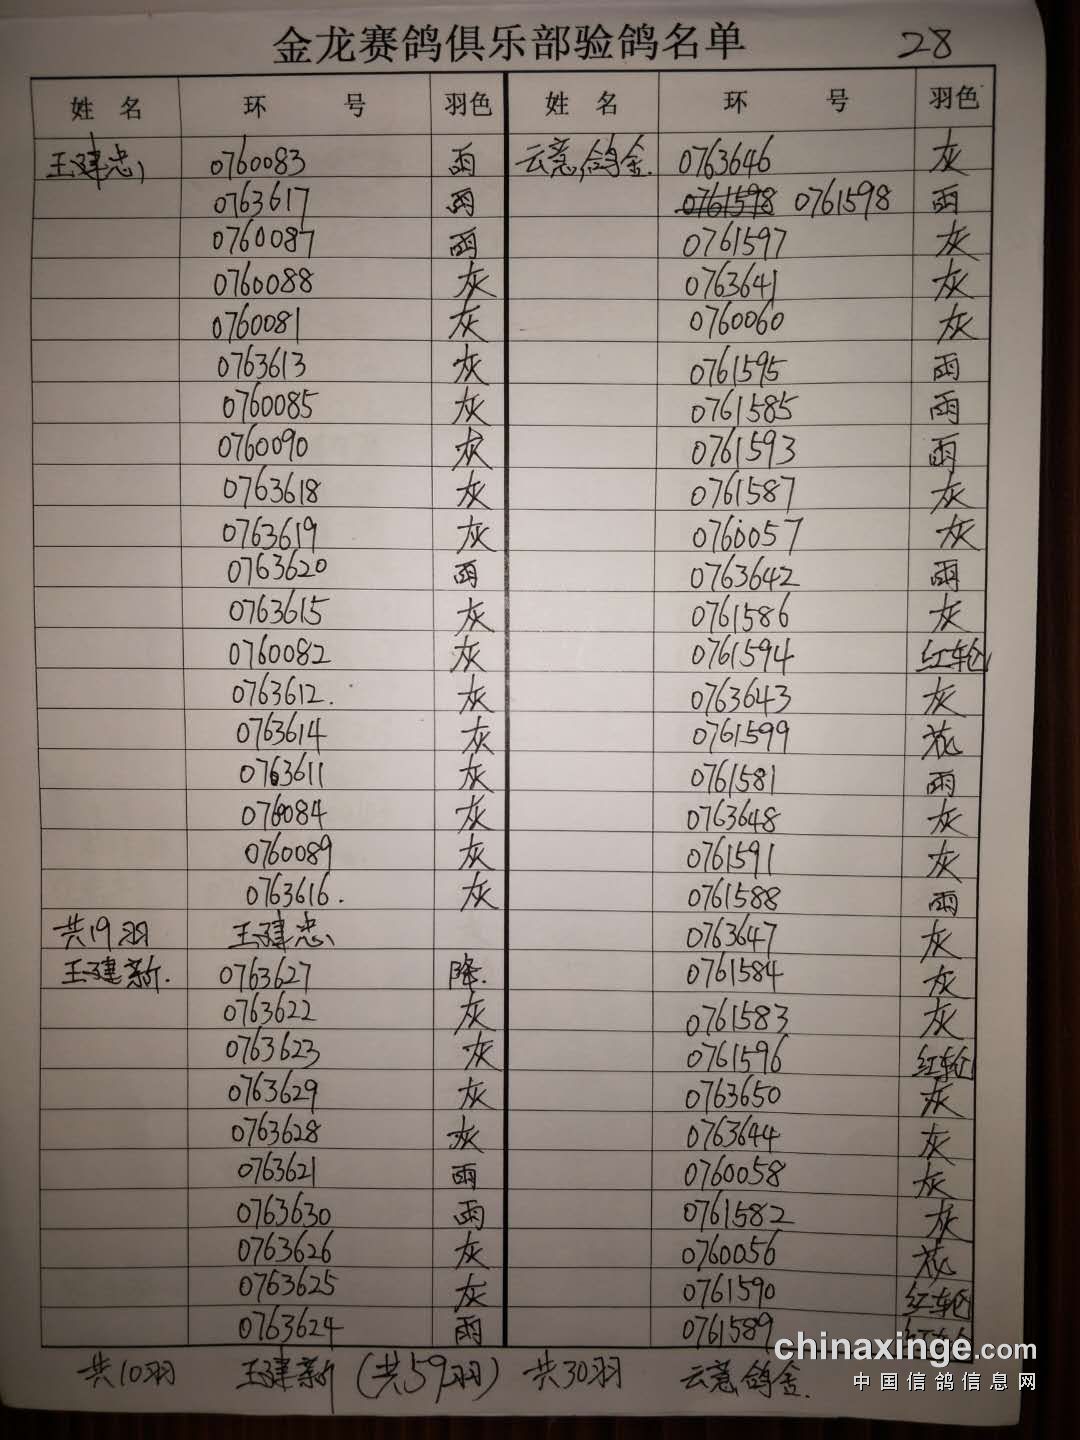 金龙赛鸽俱乐部验鸽名单 28
姓名 环号 羽色 姓名 环号 羽色
王建忠 0760083 雨 云意鸽舍 0763646 灰
0763617 雨 0761598 0761598 雨
0760087 雨 0761597 灰
0760088 灰 0763641 灰
0760081 灰 0760060 灰
0763613 灰 0761595 雨
0760085 灰 0761585 雨
0760090 灰 0761593 雨
0763618 灰 0761587 灰
0763619 灰 0760057 灰
0763620 雨 0763642 雨
0763615 灰 0761586 灰
0760082 灰 0761594 红轮
0763612. 灰 0763643 灰
0763614 灰 0761599 花
0763611 灰 0761581 雨
0760084 灰 0763648 灰
0760089 灰 0761591 灰
0763616. 灰 0761588 雨
共19羽 王建忠 0763647 灰
王建新. 0763627 降. 0761584 灰
0763622 灰 0761583 灰
0763623 灰 0761596 红轮
0763629 灰 0763650 灰
0763628 灰 0763644 灰
0763621 雨 0760058 灰
0763630 雨 0761582 灰
0763626 灰 0760056 花
0763625 灰 0761590 红轮
0763624 雨 0761589
共10羽 王建新 (共59羽) 共30羽 云意鸽舍.
chinaxinge.com
中国信鸽信息网